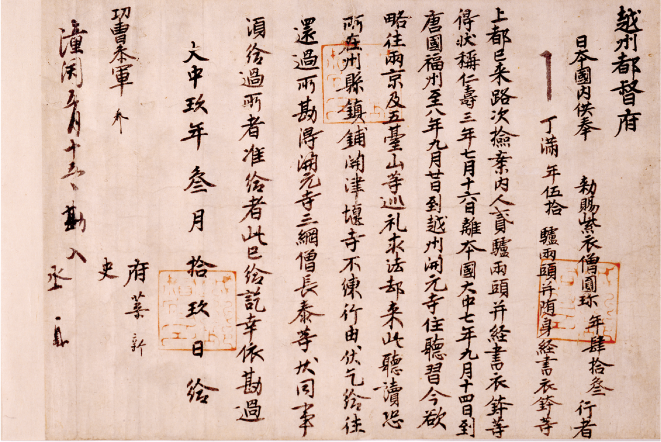 越州都督府
日本國内供奉 勅賜紫衣僧圓珎 年肆拾叁 行者
丁滿 年伍拾 驢兩頭并随身経書衣鉢等
上都已来路次撿案内人貳驢兩頭并経書衣鉢等
得状稱仁壽三年七月十六日離夲國大中七年九月十四日到
唐國福州至八年九月廿日到越州開元寺住聽習今欲
略往兩京及五臺山等巡礼求法却来此聽讀恐
所在州縣鎮鋪開津堰寺不練行由伏乞給往
還過所勘得開元寺三綱僧長泰等状同事
須給過所者准給者此已給訖幸依勘過
大中玖年叁月拾玖日給
府葉新
功曹叅軍
史
潼関五月十五日勘入
丞